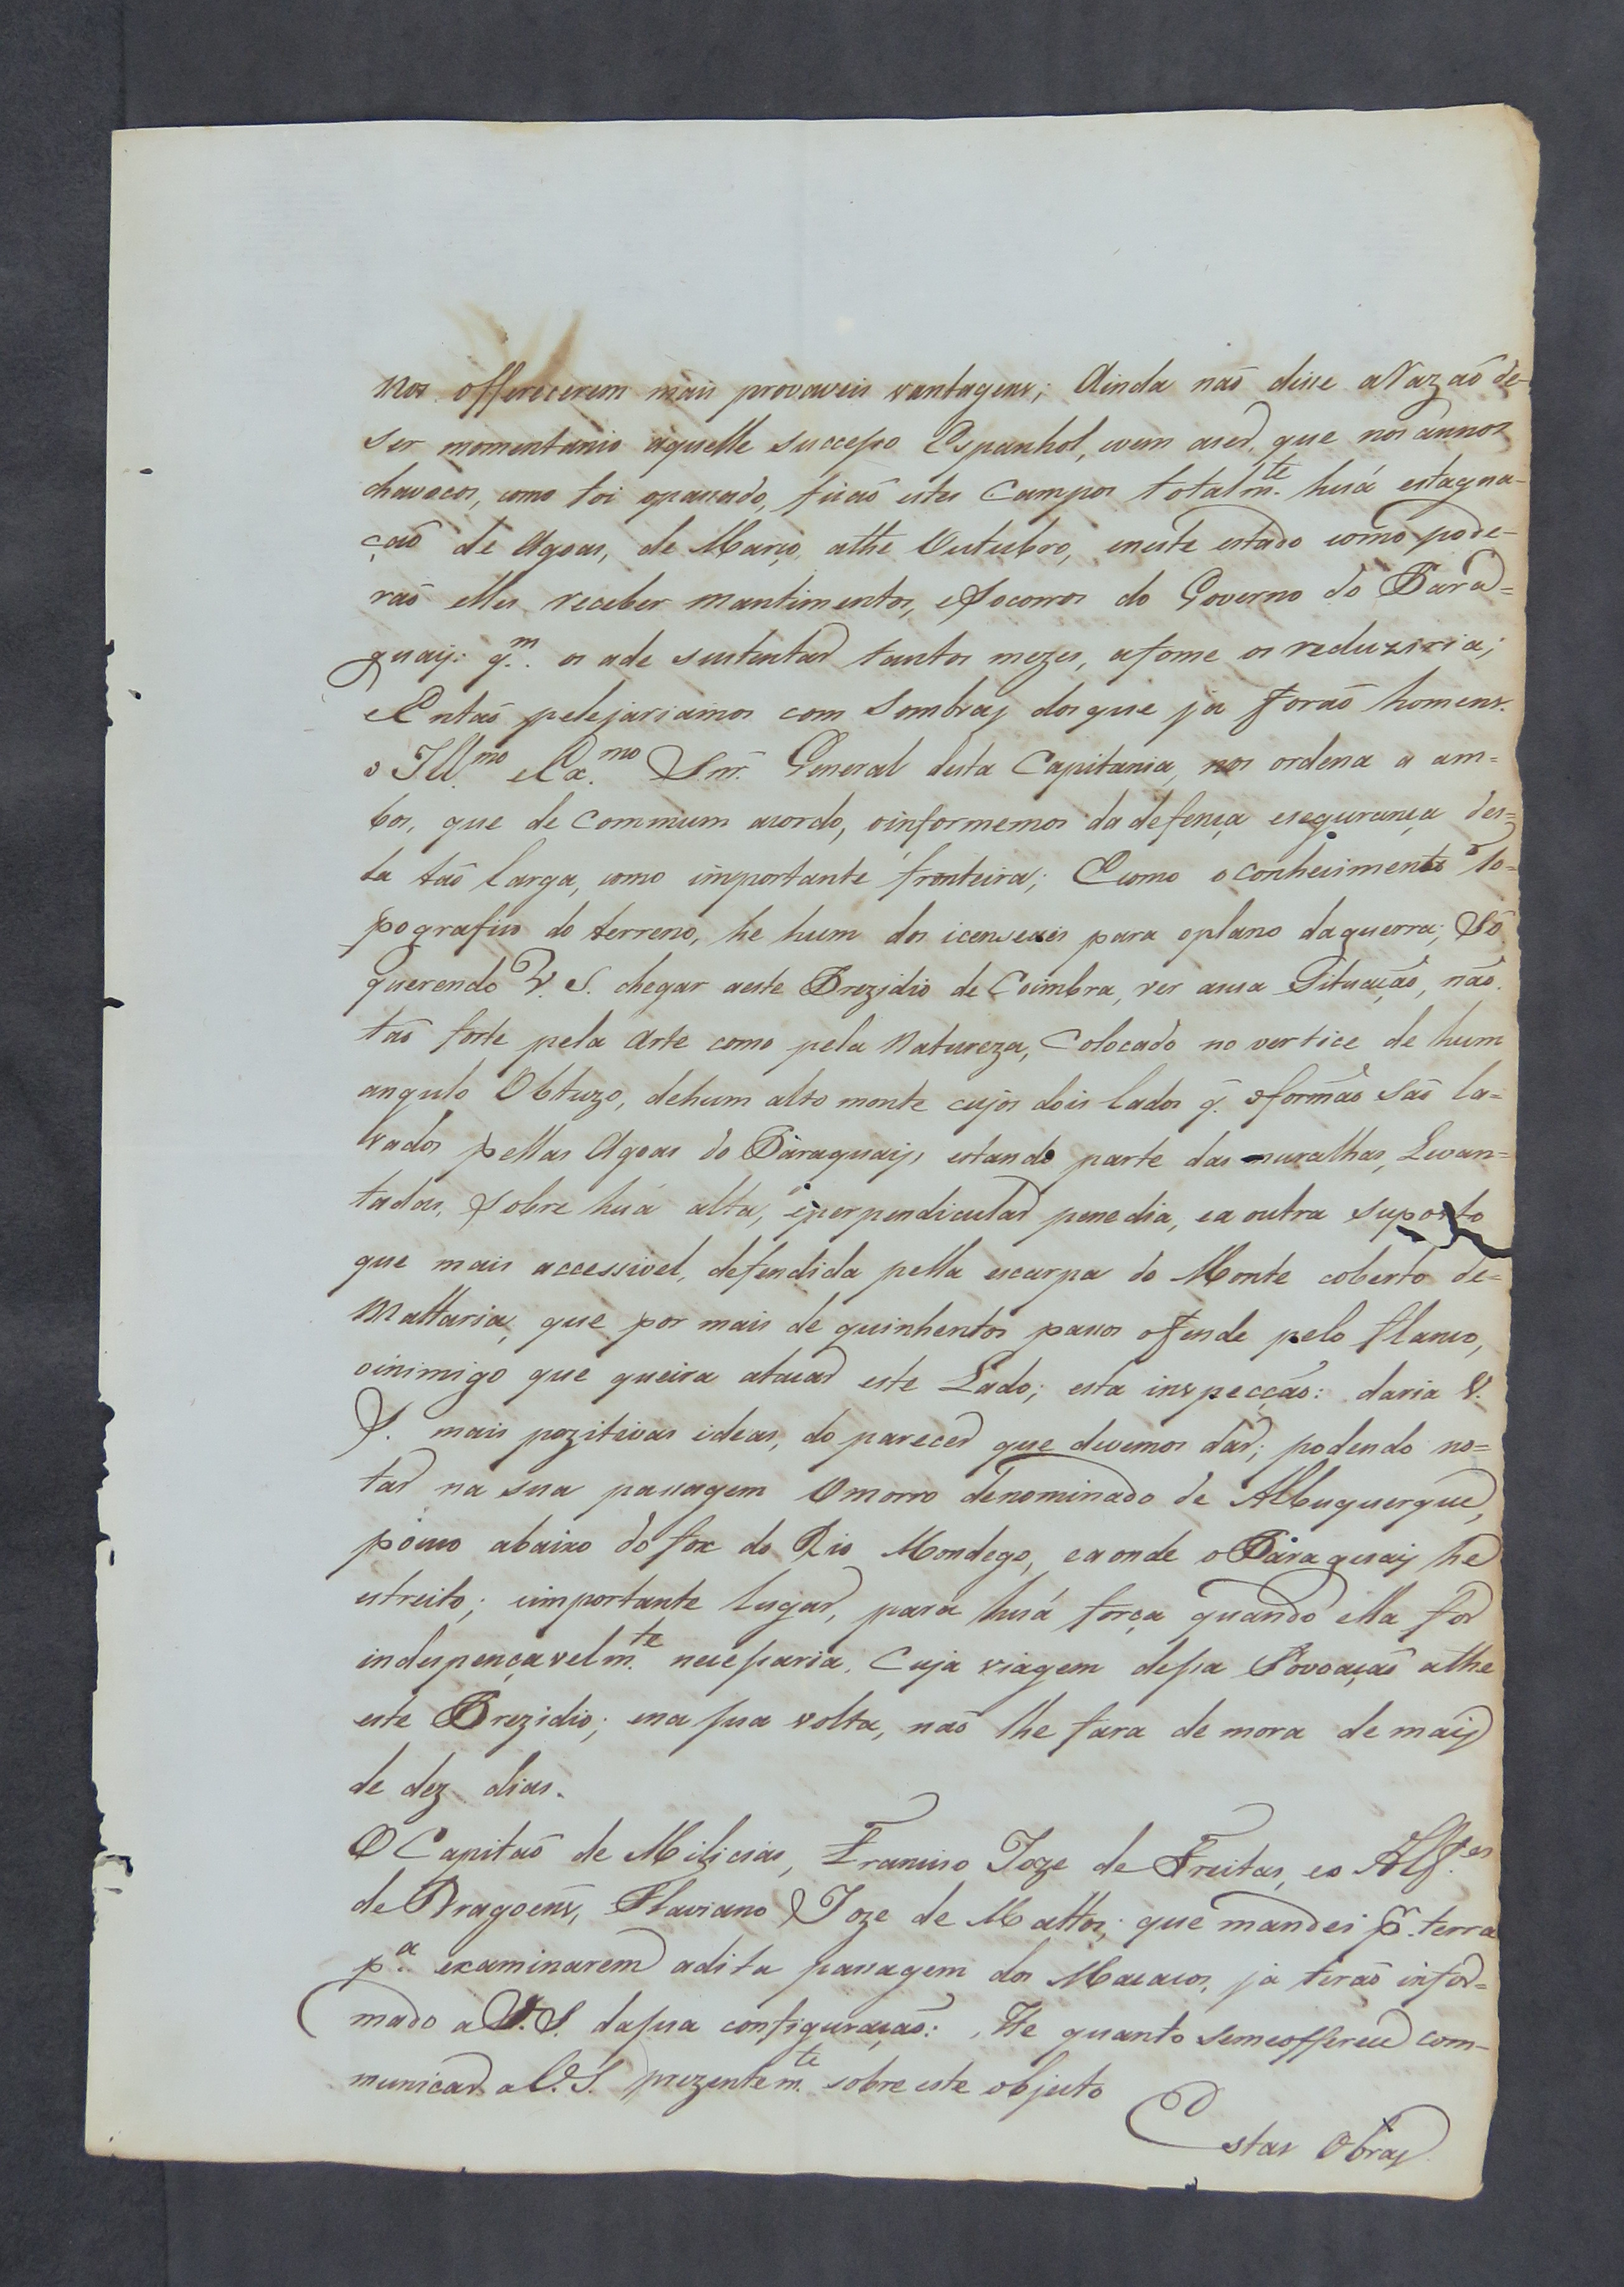 nos offerecerem mais provaveis vantagens; Ainda não disse a Razaõ de-
ser momentanio aquelle successo Espanhol, vem aser, que nos annos
chavecos, como foi opassado, ficaõ estes Campos totalm.te huá estagna-
çaõ de Agoas, de Março, athe Outubro, eneste estado como pode-
raõ elles receber mantimentos, eSocorros do Governo do Para=
guaij: q.m os ade sustentar tantos mezes, afome os reduziria;
eEntaõ pelejariamos com Sombras dosque ja foraõ homens.
o Ill.mo eEx.mo Snr. General desta Capitania, nos ordena a am=
bos, que de Commum acordo, oinformemos da defença esegurança des=
ta taõ larga, como importante fronteira; Ecomo oconhecimento to=
pografico do terreno, he hum dos icenseaes para oplano daguerra; Só
querendo V. S. chegar aeste Prezidio de Coimbra, ver asua Situaçaõ, naõ
taõ forte pela Arte como pela Natureza, Colocado no vertice de hum
angulo Obtuzo, dehum alto monte cujos dois lados q. oformaõ Saõ la=
vados pellas Agoas do Páraguaij, estando parte das muralhas, Levan=
tadas, Sobre huá alta, eperpendicular penedia, ea outra suposto
que mais accessivel, defendida pella escarpa do Monte coberto de=
Mattaria, que por mais de quinhentos passos ofende pelo flanco,
oinimigo que queira atacar este Lado; esta inspecçáo: daria V.
S. mais pozitivas ideas, do parecer que devemos dar; podendo no=
tar na sua passagem Omorro denominado de Albuquerque,
pouco abaixo do fox do Rio Mondego, eaonde oPáraguaij he
estreito; eimportante lugar, para huá força quando ella for
indespençavelm.te necessaria. Cuja viagem dessa Povoaçaõ athe
este Prezidio; ena sua volta, naõ lhe fara de mora de mais
de dez dias.
O Capitaõ de Milicias, Francisco Joze de Freitas, eo Alf.es
de Dragoens, Flaviano Joze de Mattos; que mandei p.r terra
p.a examinarem adita passagem dos Macacos, ja teraõ infor=
mado a V.S. dasua configuraçaõ: He quanto semeofferece com-
municar a V.S. prezentem.te sobre este objecto
Estas Obras